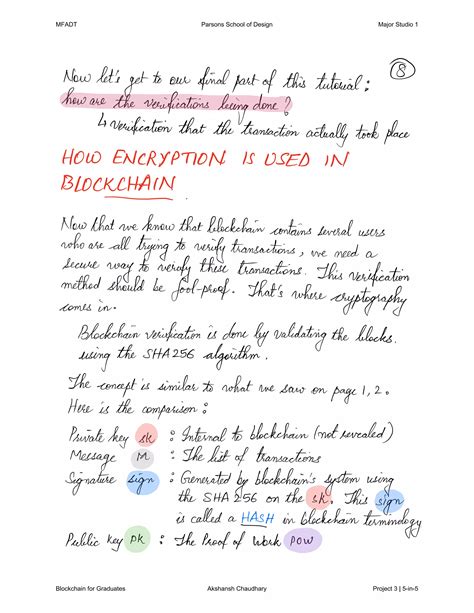 MFADT Parsons School of Design Major Studio 1
8
Now let's get to our final part of this tutorial :
how are the verifications being done ?
↳ verification that the transaction actually took place
HOW ENCRYPTION IS USED IN
BLOCKCHAIN
Now that we know that blockchain contains several users
who are all trying to verify transactions, we need a
secure way to verify these transactions. This verification
method should be fool-proof. That's where cryptography
comes in.
Blockchain verification is done by validating the blocks.
using the SHA256 algorithm.
The concept is similar to what we saw on page 1, 2.
Here is the comparison :
Private key sk : Internal to blockchain (not revealed)
Message M : The list of transactions
Signature sign : Generated by blockchain's system using
the SHA 256 on the sk. This sign
is called a HASH in blockchain terminology
Public key pk : The Proof of Work POW
Blockchain for Graduates Akshansh Chaudhary Project 3 | 5-in-5